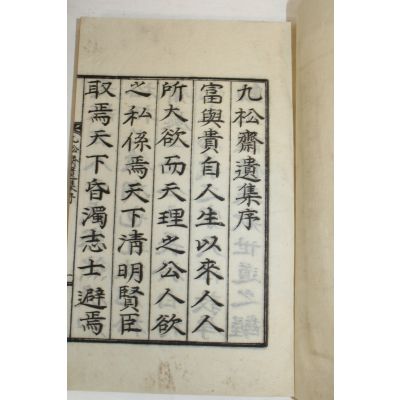 九松齋遺集序
富與貴自人生以來人人
所大欲而天理之公人欲
之私係焉天下淸明賢臣
取焉天下昏濁志士避焉
九松齋遺集序